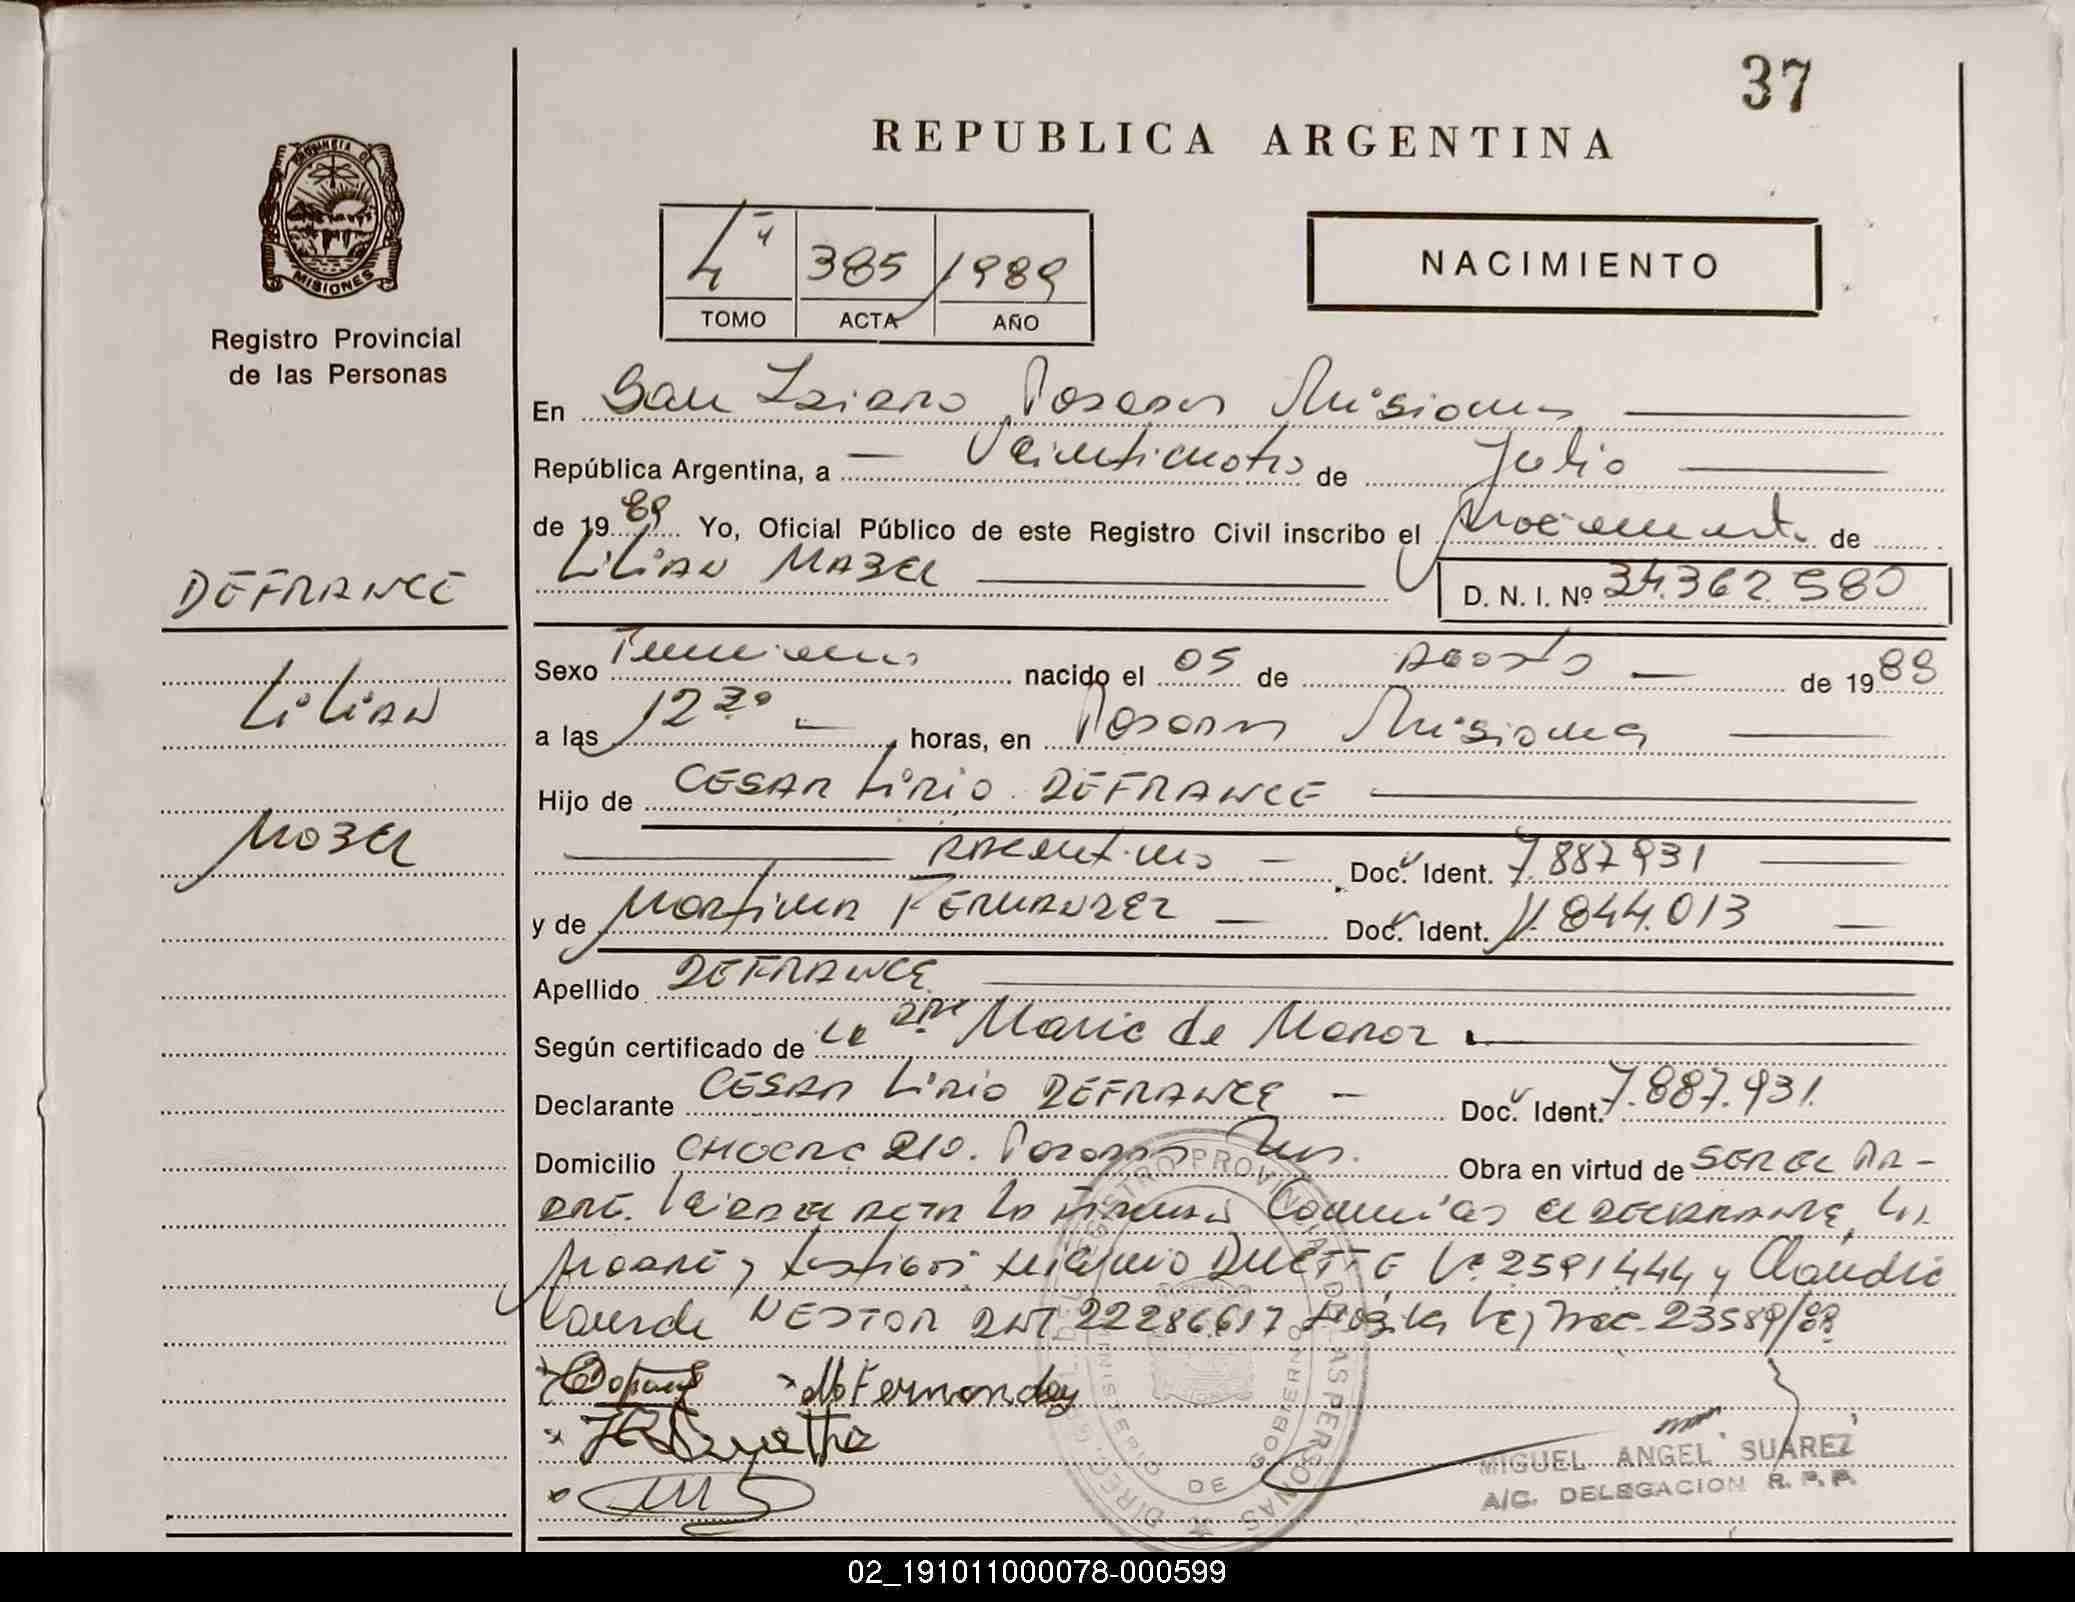 37
REPUBLICA ARGENTINA
PROVINCIA D
MISIONES
Registro Provincial
de las Personas
4 385 1989
TOMO ACTA AÑO
NACIMIENTO
En San Isidro Posadas Misiones
República Argentina, a Veinticuatro de Julio
de 1989 Yo, Oficial Público de este Registro Civil inscribo el Nacimiento de
LiLiAN MABEL D. N. I. Nº 34.362.980
DEFRANCE
LiLiAN
MABEL
Sexo Femenino nacido el 05 de Agosto de 1988
a las 12 30 horas, en Posadas Misiones
Hijo de CESAR LiRiO DEFRANCE
Argentino Doc. Ident. 7.887.931
y de Martina FERNANDEZ Doc. Ident. 11.844.013
Apellido DEFRANCE
Según certificado de La Dra Maria de Manoz
Declarante CESAR LiRiO DEFRANCE Doc. Ident. 7.887.931.
Domicilio CHACRA 210. Posadas Mns. Obra en virtud de SER EL PA-
DRE. Leida el ACTA la firman Conmigo el DECLARANTE, la
Madre y testigos DUETTE 2591444 y Claudia
Lourdes NESTOR DNI 22286617 Ley 23589/88
M Fernandez
DIREC. GRAL. DEL REGISTRO PROVINCIAL DE LAS PERSONAS
MINISTERIO DE GOBIERNO
MIGUEL ANGEL SUAREZ
A/C. DELEGACION R. P. P.
02_191011000078-000599